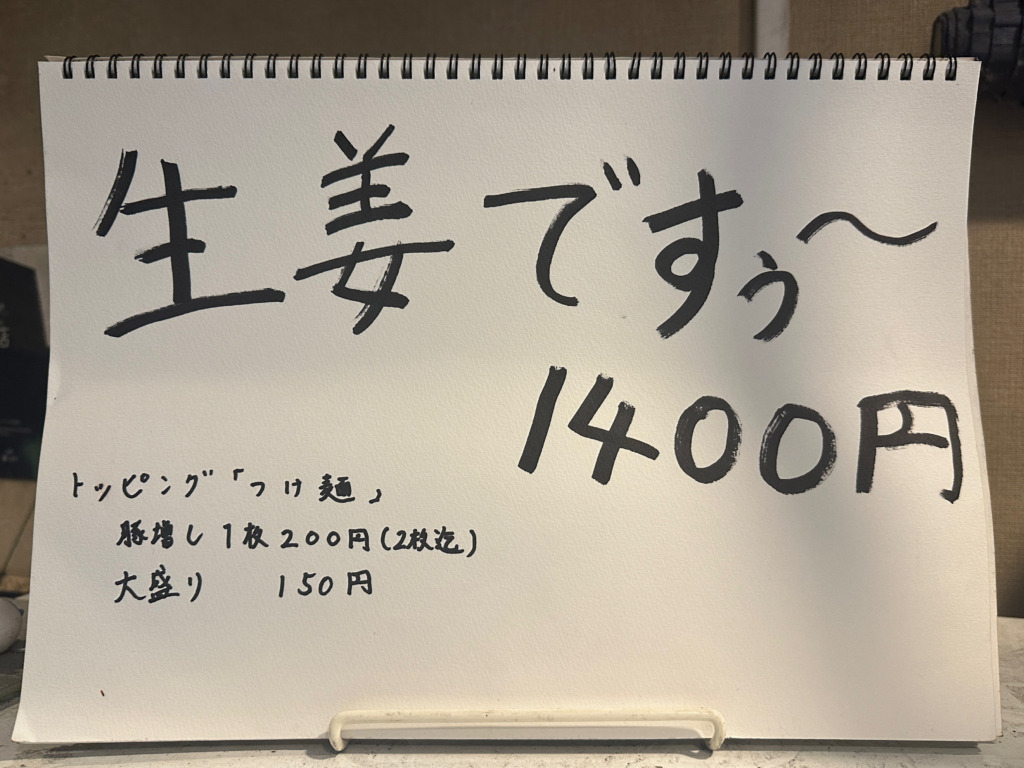 生姜ですぅ〜
1400円
トッピング「つけ麺」
豚増し1枚200円(2枚迄)
大盛り 150円